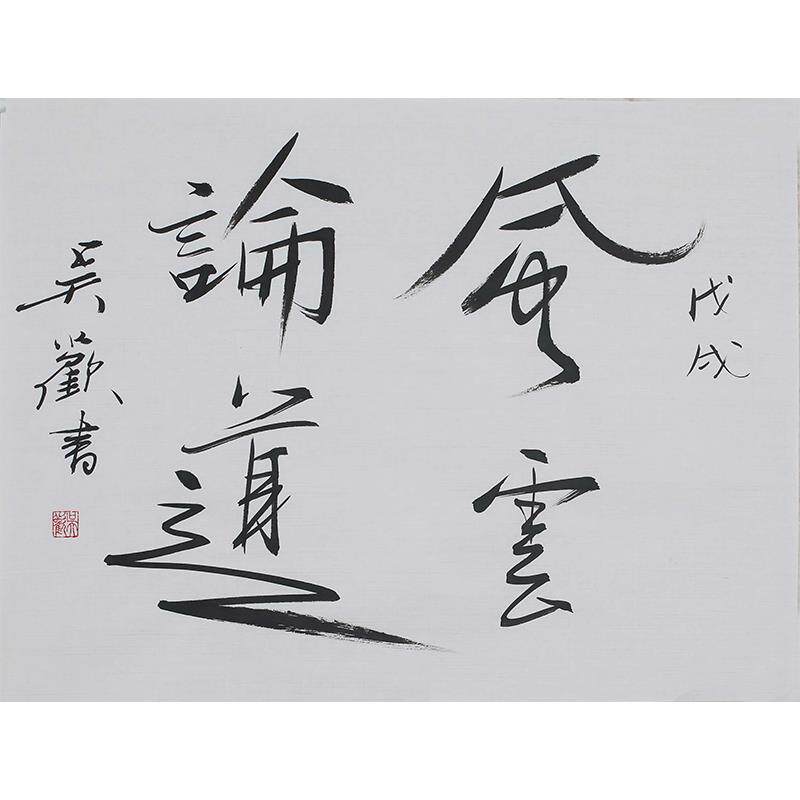 戊戌
風雲
論道
吴歡書